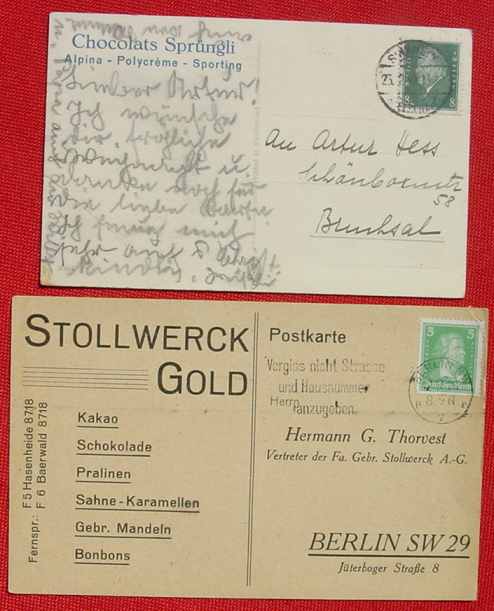 Chocolats Sprüngli
Alpina - Polycrème - Sporting
Lieber Artur!
Ich wünsche
dir fröhliche
Weihnacht u.
danke noch für
die liebe Karte.
Ich
sehr auf
8
An Artur Hess
Schönbornstr
58
Bruchsal
STOLLWERCK
GOLD
Kakao
Schokolade
Pralinen
Sahne-Karamellen
Gebr. Mandeln
Bonbons
Fernspr.: F 5 Hasenheide 8718
F 6 Baerwald 8718
Postkarte
5 5
Vergiss nicht Strasse
und Hausnummer
Herrn
anzugeben.
Hermann G. Thorvest
Vertreter der Fa. Gebr. Stollwerck A.-G.
BERLIN SW 29
Jüterboger Straße 8